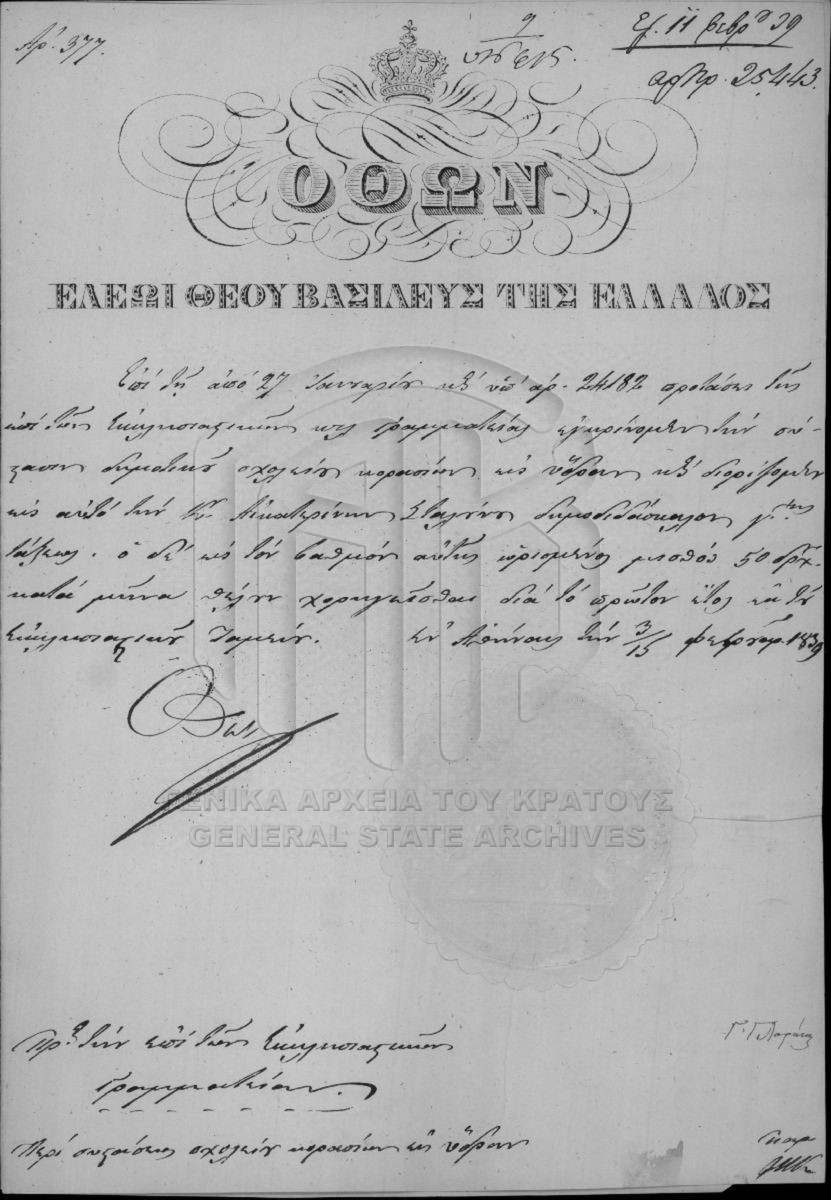 Αρ. 377.
Ελ. 11 Φεβρ. 39
αριθμ. 25443.
ΟΘΩΝ
ΕΛΕΩΙ ΘΕΟΥ ΒΑΣΙΛΕΥΣ ΤΗΣ ΕΛΛΑΔΟΣ
Ἐπὶ τῇ ἀπὸ 27 Ἰανουαρίου καὶ ὑπ' ἀρ. 24182 προτάσει τῆς
ἐπὶ τῶν Ἐκκλησιαστικῶν κτλ Γραμματείας ἐγκρίνομεν τὴν σύ-
στασιν δημοτικοῦ σχολείου κορασίων εἰς Ὕδραν καὶ διορίζομεν
εἰς αὐτὸ τὴν Κ. Αἰκατερίνην δημοδιδάσκαλον γ'. της
τάξεως. ὁ δὲ εἰς τὸν βαθμὸν αὐτῆς ὡρισμένος μισθὸς 50 δρχ.
κατὰ μῆνα θέλει χορηγεῖσθαι διὰ τὸ πρῶτον ἔτος ἐκ τοῦ
Ἐκκλησιαστικοῦ Ταμείου. Ἐν Ἀθήναις τὴν 3/15 Φεβρουαρ. 1839
Ὄθων
ΓΕΝΙΚΑ ΑΡΧΕΙΑ ΤΟΥ ΚΡΑΤΟΥΣ
GENERAL STATE ARCHIVES
Πρὸς τὴν ἐπὶ τῶν Ἐκκλησιαστικῶν
Γραμματείαν.
Περὶ συστάσεως σχολείου κορασίων εἰς Ὕδραν